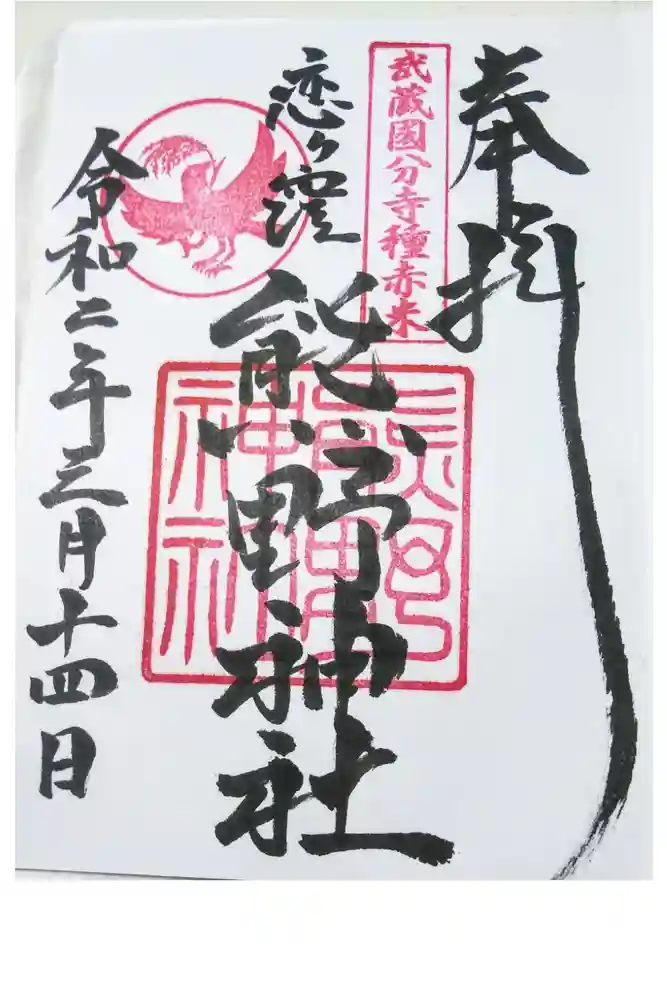 奉拝
武蔵國分寺種赤米
恋ヶ窪
熊野神社
熊野神社
令和二年三月十四日